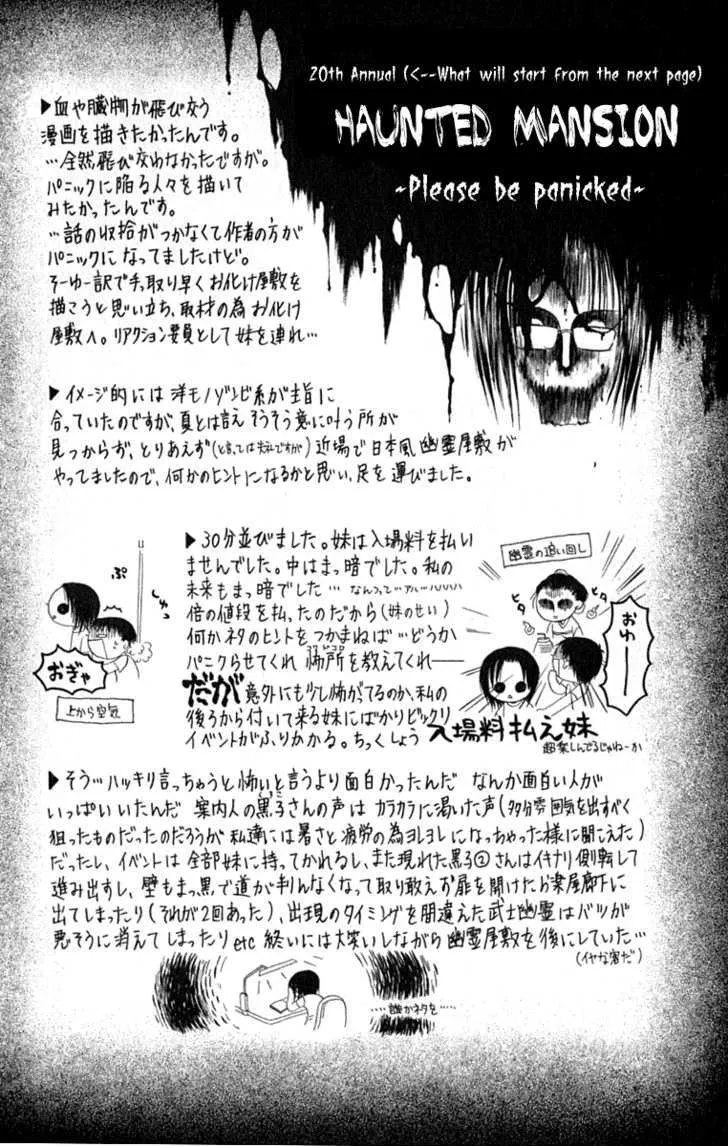 20th Annual (<--What will start from the next page)
HAUNTED MANSION
~Please be panicked~
▶血や臓物が飛び交う
漫画を描きたかったんです。
…全然飛び交わなかったですが。
パニックに陥る人々を描いて
みたかったんです。
…話の収拾がつかなくて作者の方が
パニックになってましたけど。
そーゆー訳で手っ取り早くお化け屋敷を
描こうと思い立ち、取材の為お化け
屋敷へ。リアクション要員として妹を連れ…
▶イメージ的には洋モノゾンビ系が主旨に
合っていたのですが、夏とは言えそうそう意に叶う所が
見つからず、とりあえず(と言っては失礼ですが)近場で日本風幽霊屋敷が
やってましたので、何かのヒントになるかと思い、足を運びました。
▶30分並びました。妹は入場料を払い
ませんでした。中はまっ暗でした。私の
未来もまっ暗でした…
倍の値段を払ったのだから(妹のせい)
何かネタのヒントをつかまねば…どうか
パニクらせてくれ 怖所を教えてくれ──
だが 意外にも少し怖がってるのか、私の
後ろから付いて来る妹にばかりビックリ
イベントがふりかかる。ちっくしょう
入場料払え妹
超楽しんでるじゃねーか
ぷ
しゅっ
おぎゃ
上から空気
幽霊の追い回し
ヒタ
ヒタ
おゆ───
▶そうッハッキリ言っちゃうと怖いと言うより面白かったんだ なんか面白い人が
いっぱいいたんだ 案内人の黒子さんの声はカラカラに渇いた声(多分雰囲気を出すべく
狙ったものだったのだろうが私達には暑さと疲労の為ヨレヨレになっちゃった様に聞こえた)
だったし、イベントは全部妹に持ってかれるし、また現れた黒子②さんはイキナリ側転して
進み出すし、壁もまっ黒で道が判んなくなって取り敢えず扉を開けたら楽屋廊下に
出てしまったり(それが2回あった)、出現のタイミングを間違えた武士幽霊はバツが
悪そうに消えてしまったりetc 終いには大笑いしながら幽霊屋敷を後にしていた…
(イヤな客だ)
……誰かネタを……